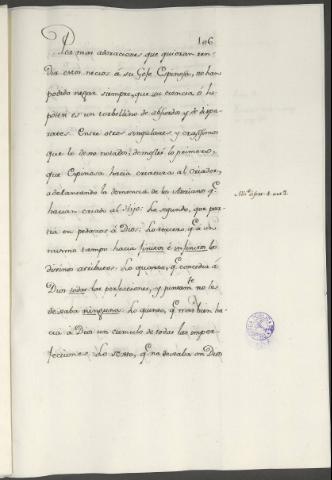 106
Por mas adoraciones que quieran ren-
dir estos necios á su Gefe Espinosa, no han
podido negar siempre, que su ciencia ó hi-
potesi es un torbellino de absurdos y de dispa-
rates. Entre otros singulares y crasissimos
que le dexo notados: demostré lo primero,
que Espinosa hacia creatura al criador,
adelantando la demencia de los Arrianos q.
hacian criado al Hijo: Lo segundo, que par-
tia en pedazos á Dios: Lo tercero, q. á un
mismo tiempo hacia finitos é infinitos los
divinos atributos: Lo quarto, q. concedia á
Dios todas las perfecciones, y juntam.te no le
dexaba ninguna: Lo quinto, q. mas bien ha-
cia á Dios un cumulo de todas las imper-
fecciones: Lo sexto, q. no dexaba en Dios